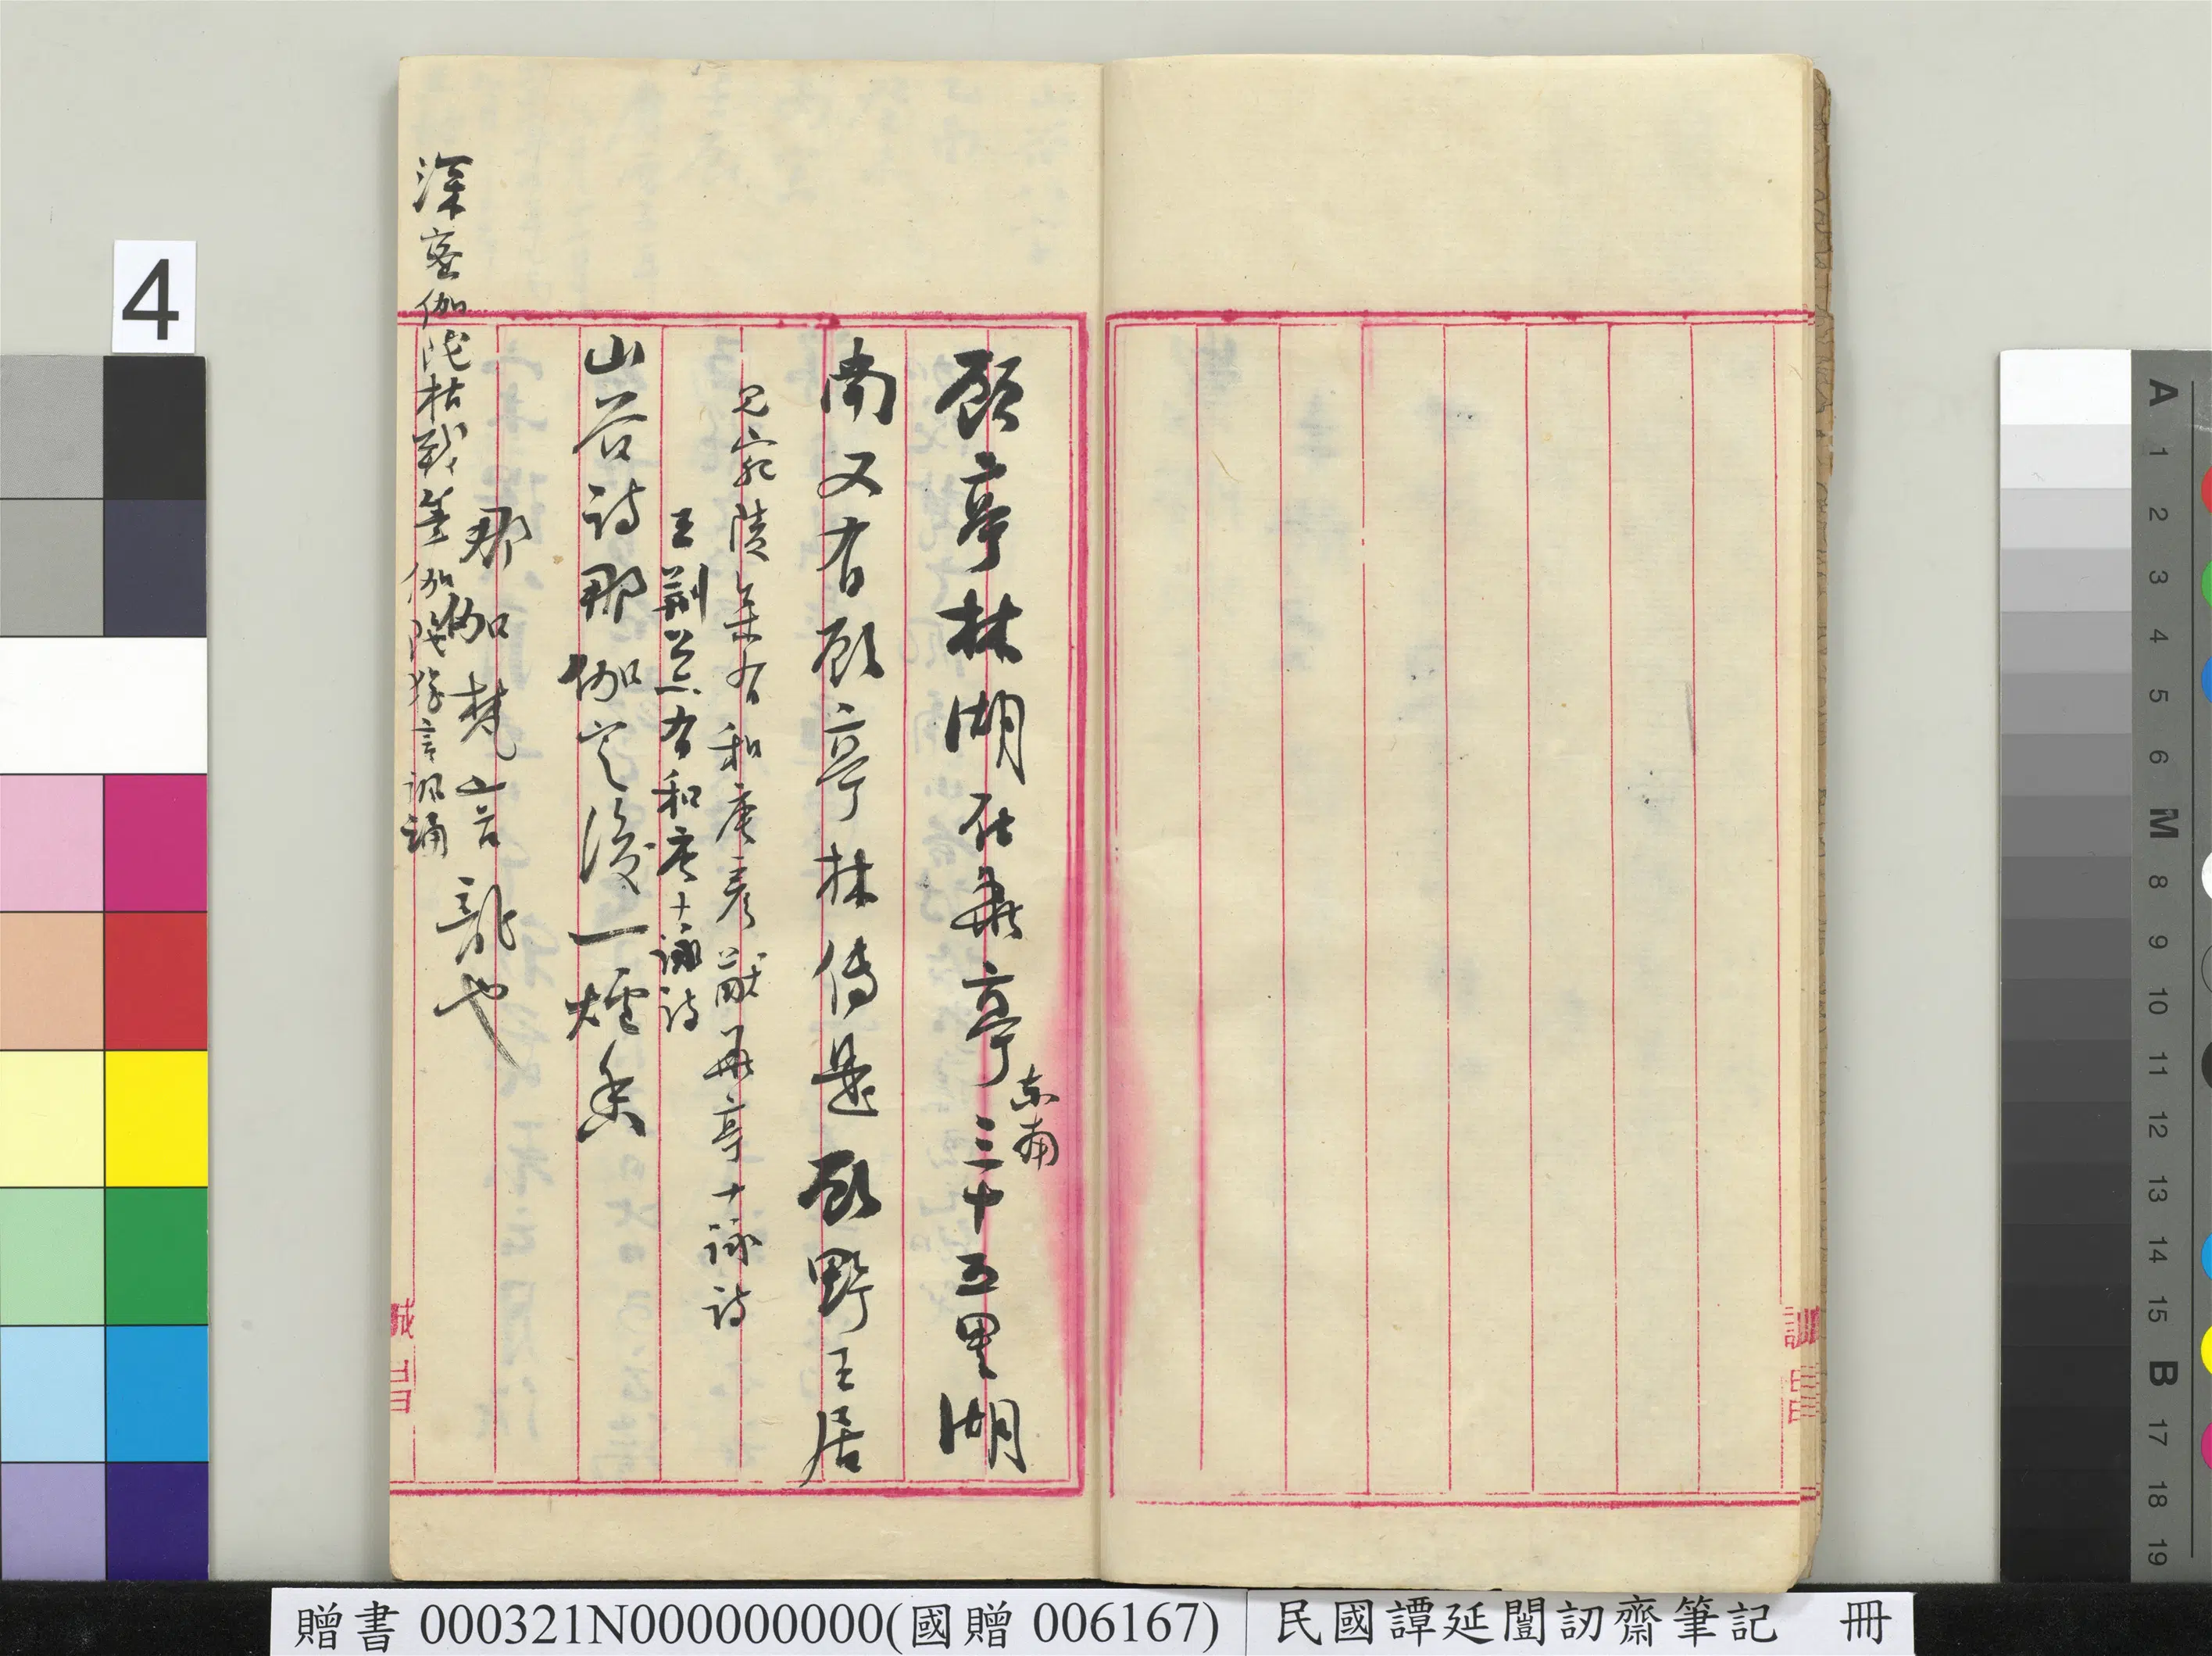 顧亭林湖在華亭東南三十五里湖
南又有顧亭林傳是顧野王居
見宛陵集有和唐彥猷華亭十詠詩
王荊公亦有和唐十詠詩
山谷詩那伽定後一爐香
那伽梵言龍也
深密伽陀枯戰筆伽陀猶言諷誦
誠
訓
4
A 1 2 3 4 5 6 M 8 9 10 11 12 13 14 15 B 17 18 19
贈書 000321N000000000(國贈 006167) 民國譚延闓訒齋筆記 冊